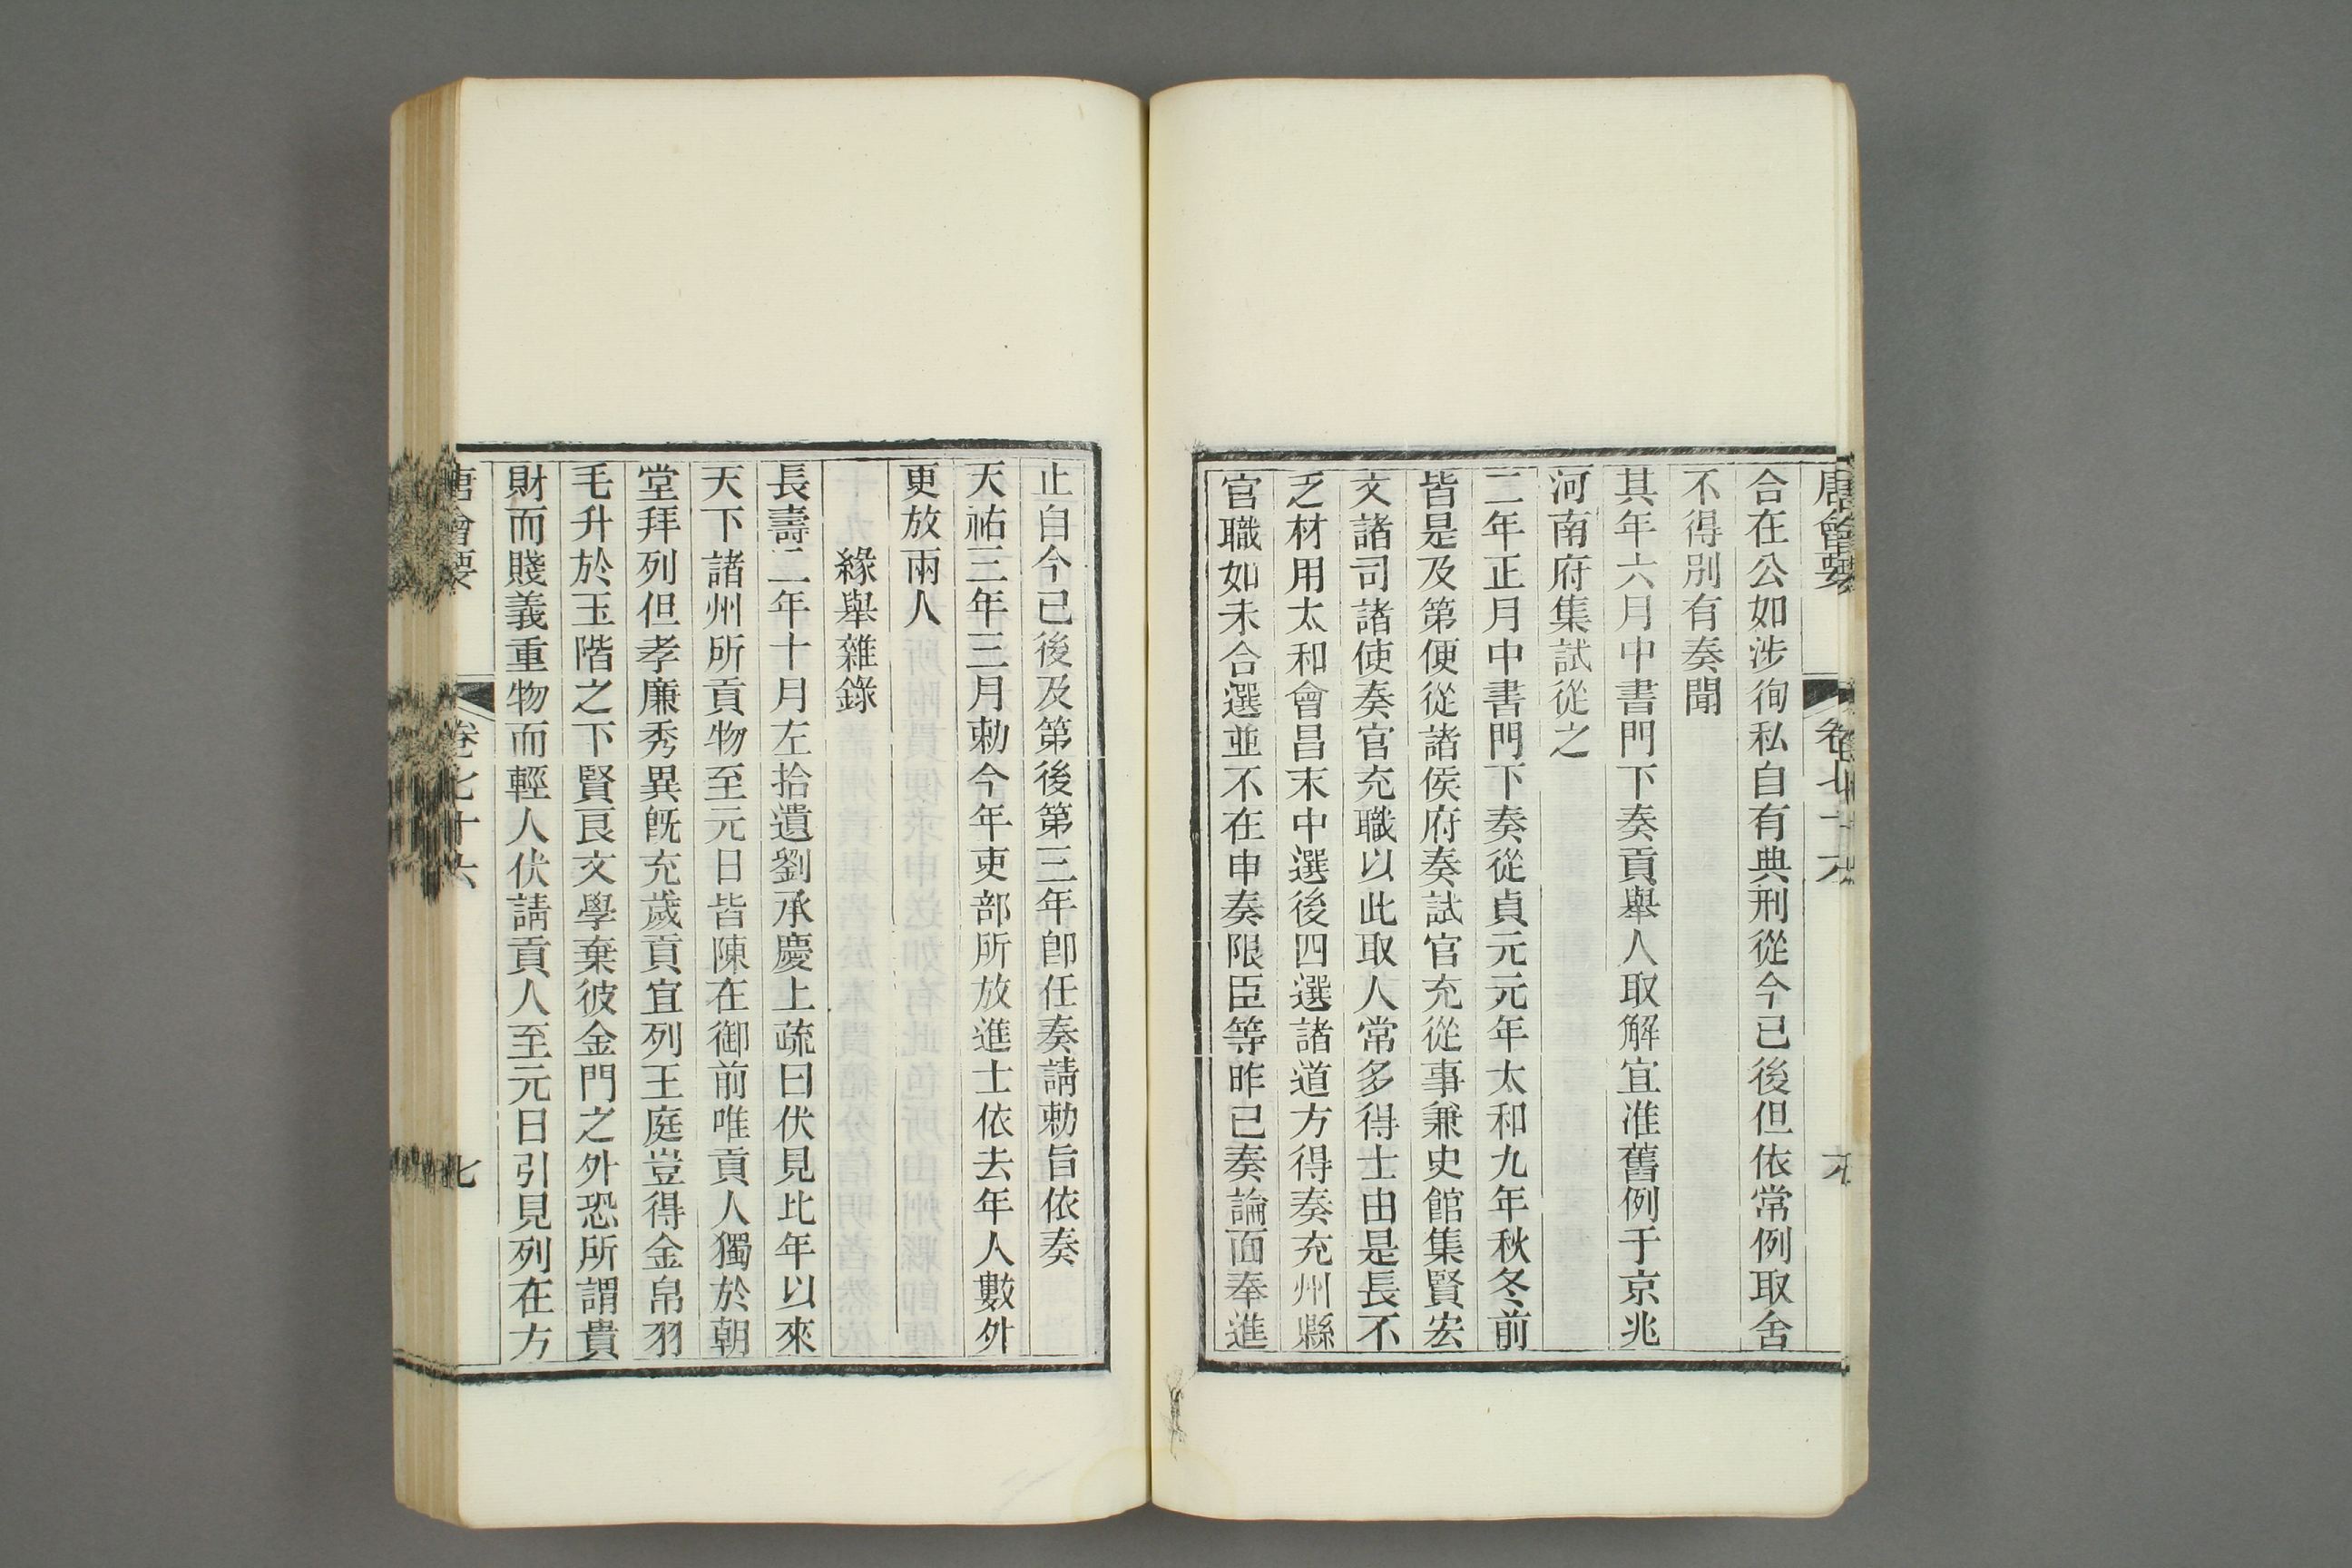 唐會要 卷七十六 六
合在公如涉徇私自有典刑從今已後但依常例取舍
不得別有奏聞
其年六月中書門下奏貢舉人取解宜准舊例于京兆
河南府集試從之
二年正月中書門下奏從貞元元年太和九年秋冬前
皆是及第便從諸侯府奏試官充從事兼史館集賢宏
文諸司諸使奏官充職以此取人常多得士由是長不
乏材用太和會昌末中選後四選諸道方得奏充州縣
官職如未合選並不在申奏限臣等昨已奏論面奉進
止自今已後及第後第三年卽任奏請勅旨依奏
天祐三年三月勅今年吏部所放進士依去年人數外
更放兩人
緣舉雜錄
長壽二年十月左拾遺劉承慶上疏曰伏見比年以來
天下諸州所貢物至元日皆陳在御前唯貢人獨於朝
堂拜列但孝廉秀異旣充歲貢宜列王庭豈得金帛羽
毛升於玉階之下賢良文學棄彼金門之外恐所謂貴
財而賤義重物而輕人伏請貢人至元日引見列在方
唐會要 卷七十六 七